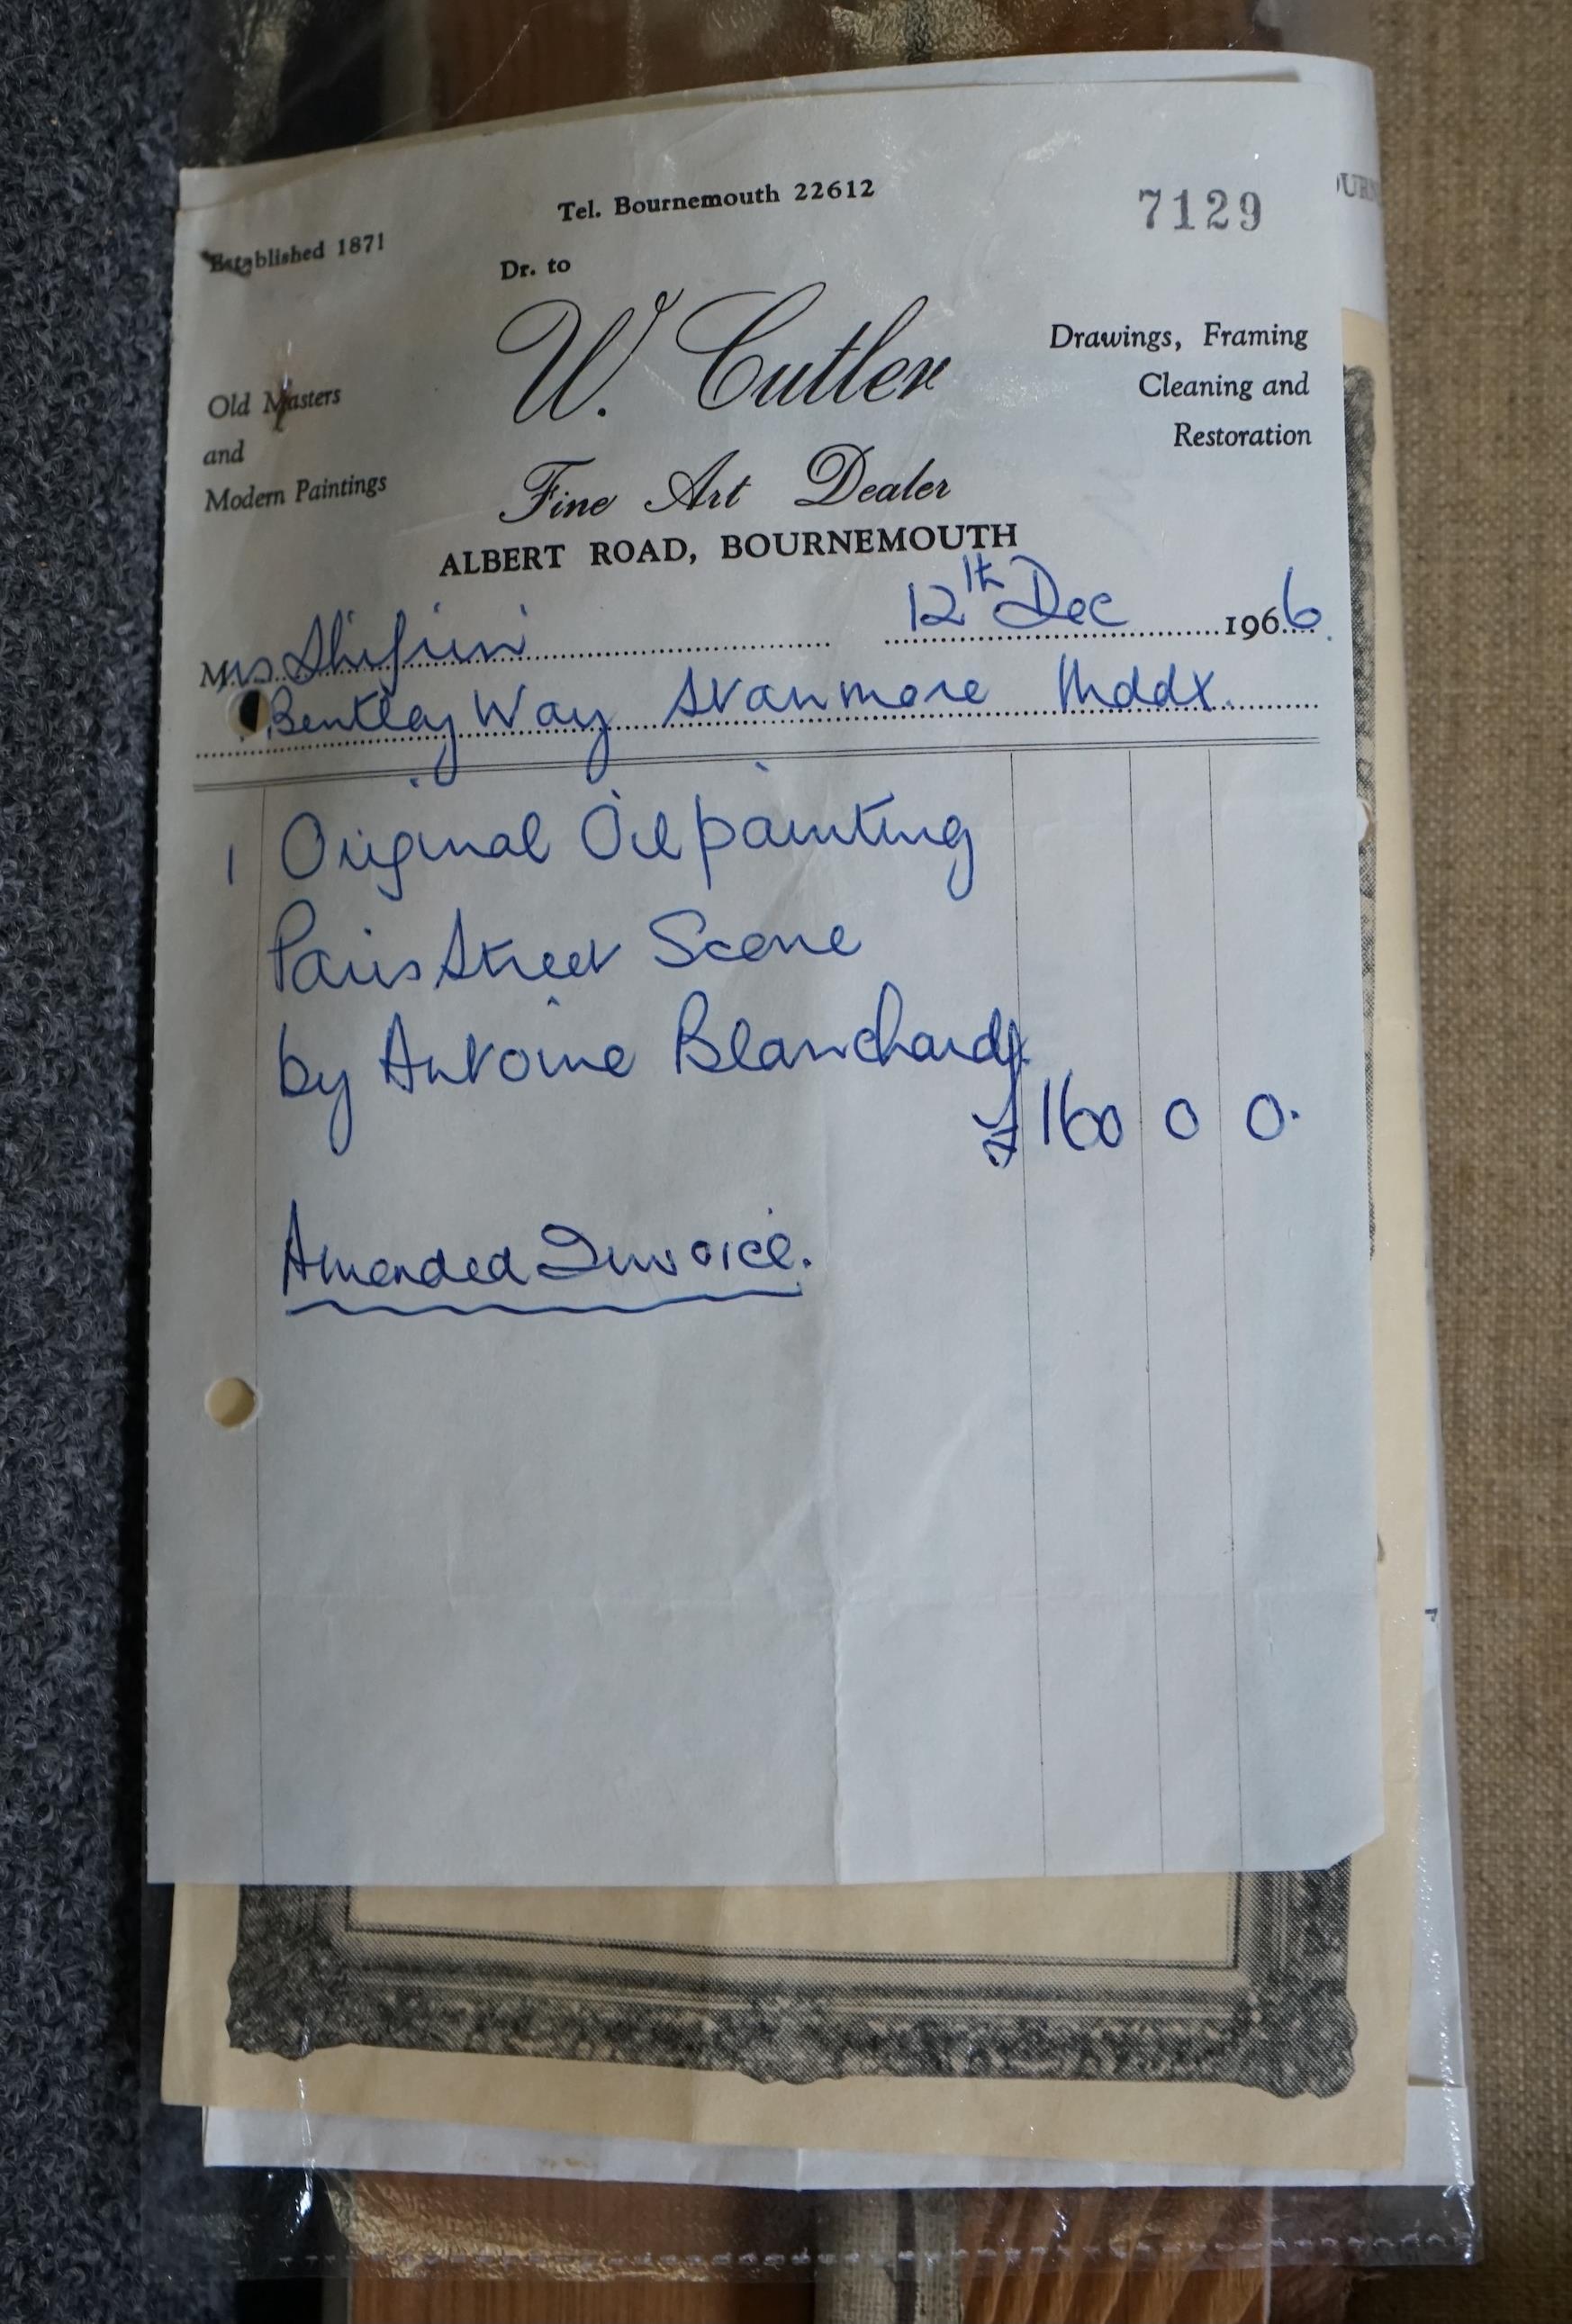 Tel. Bournemouth 22612
7129
Established 1871
Dr. to
W. Cutler
Drawings, Framing
Cleaning and
Restoration
Old Masters
and
Modern Paintings
Fine Art Dealer
ALBERT ROAD, BOURNEMOUTH
12th Dec 1966.
Mrs Shifrin
Bentley Way Stanmore Middx.
1 Original Oil painting
Paris Street Scene
by Antoine Blanchard
£160 0 0.
Amended Invoice.